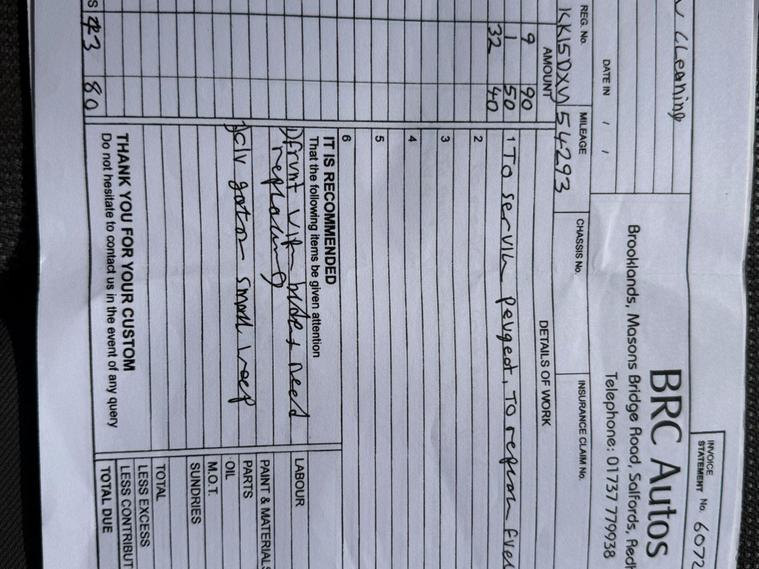 INVOICE
STATEMENT No. 6072
BRC Autos
Brooklands, Masons Bridge Road, Salfords, Redh
Telephone: 01737 779938
Cleaning
DATE IN / /
REG. No. MILEAGE CHASSIS No. INSURANCE CLAIM No.
KK15DXW 54293
AMOUNT DETAILS OF WORK
9 90 1 To service peugeot, To replace fuel
1 50
32 40 2
3
4
5
6
IT IS RECOMMENDED
That the following items be given attention
1) front need
replacing
gator small
LABOUR
PAINT & MATERIALS
PARTS
OIL
M.O.T.
SUNDRIES
TOTAL
LESS EXCESS
LESS CONTRIBUT
TOTAL DUE
THANK YOU FOR YOUR CUSTOM
Do not hesitate to contact us in the event of any query
S 43 80